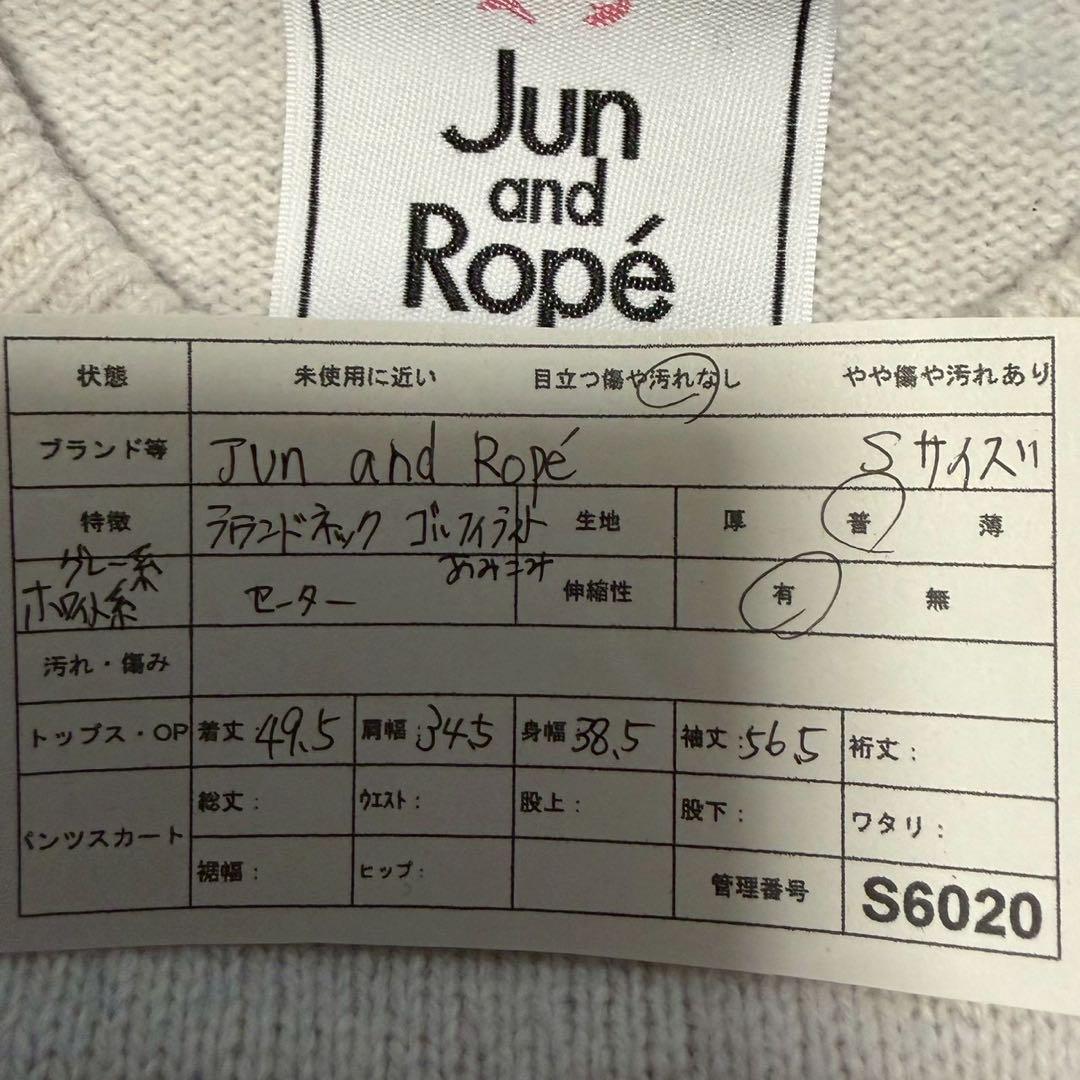 Jun
and
Ropé
状態 未使用に近い 目立つ傷や汚れなし やや傷や汚れあり
ブランド等 Jun and Ropé Sサイズ
特徴 ラウンドネック 生地 厚 普 薄
グレー系 あみこみ
ホワイト系 セーター 伸縮性 有 無
汚れ・傷み
トップス・OP 着丈:49.5 肩幅:34.5 身幅:38.5 袖丈:56.5 裄丈:
パンツスカート 総丈: ウエスト: 股上: 股下: ワタリ:
裾幅: ヒップ: 管理番号 S6020